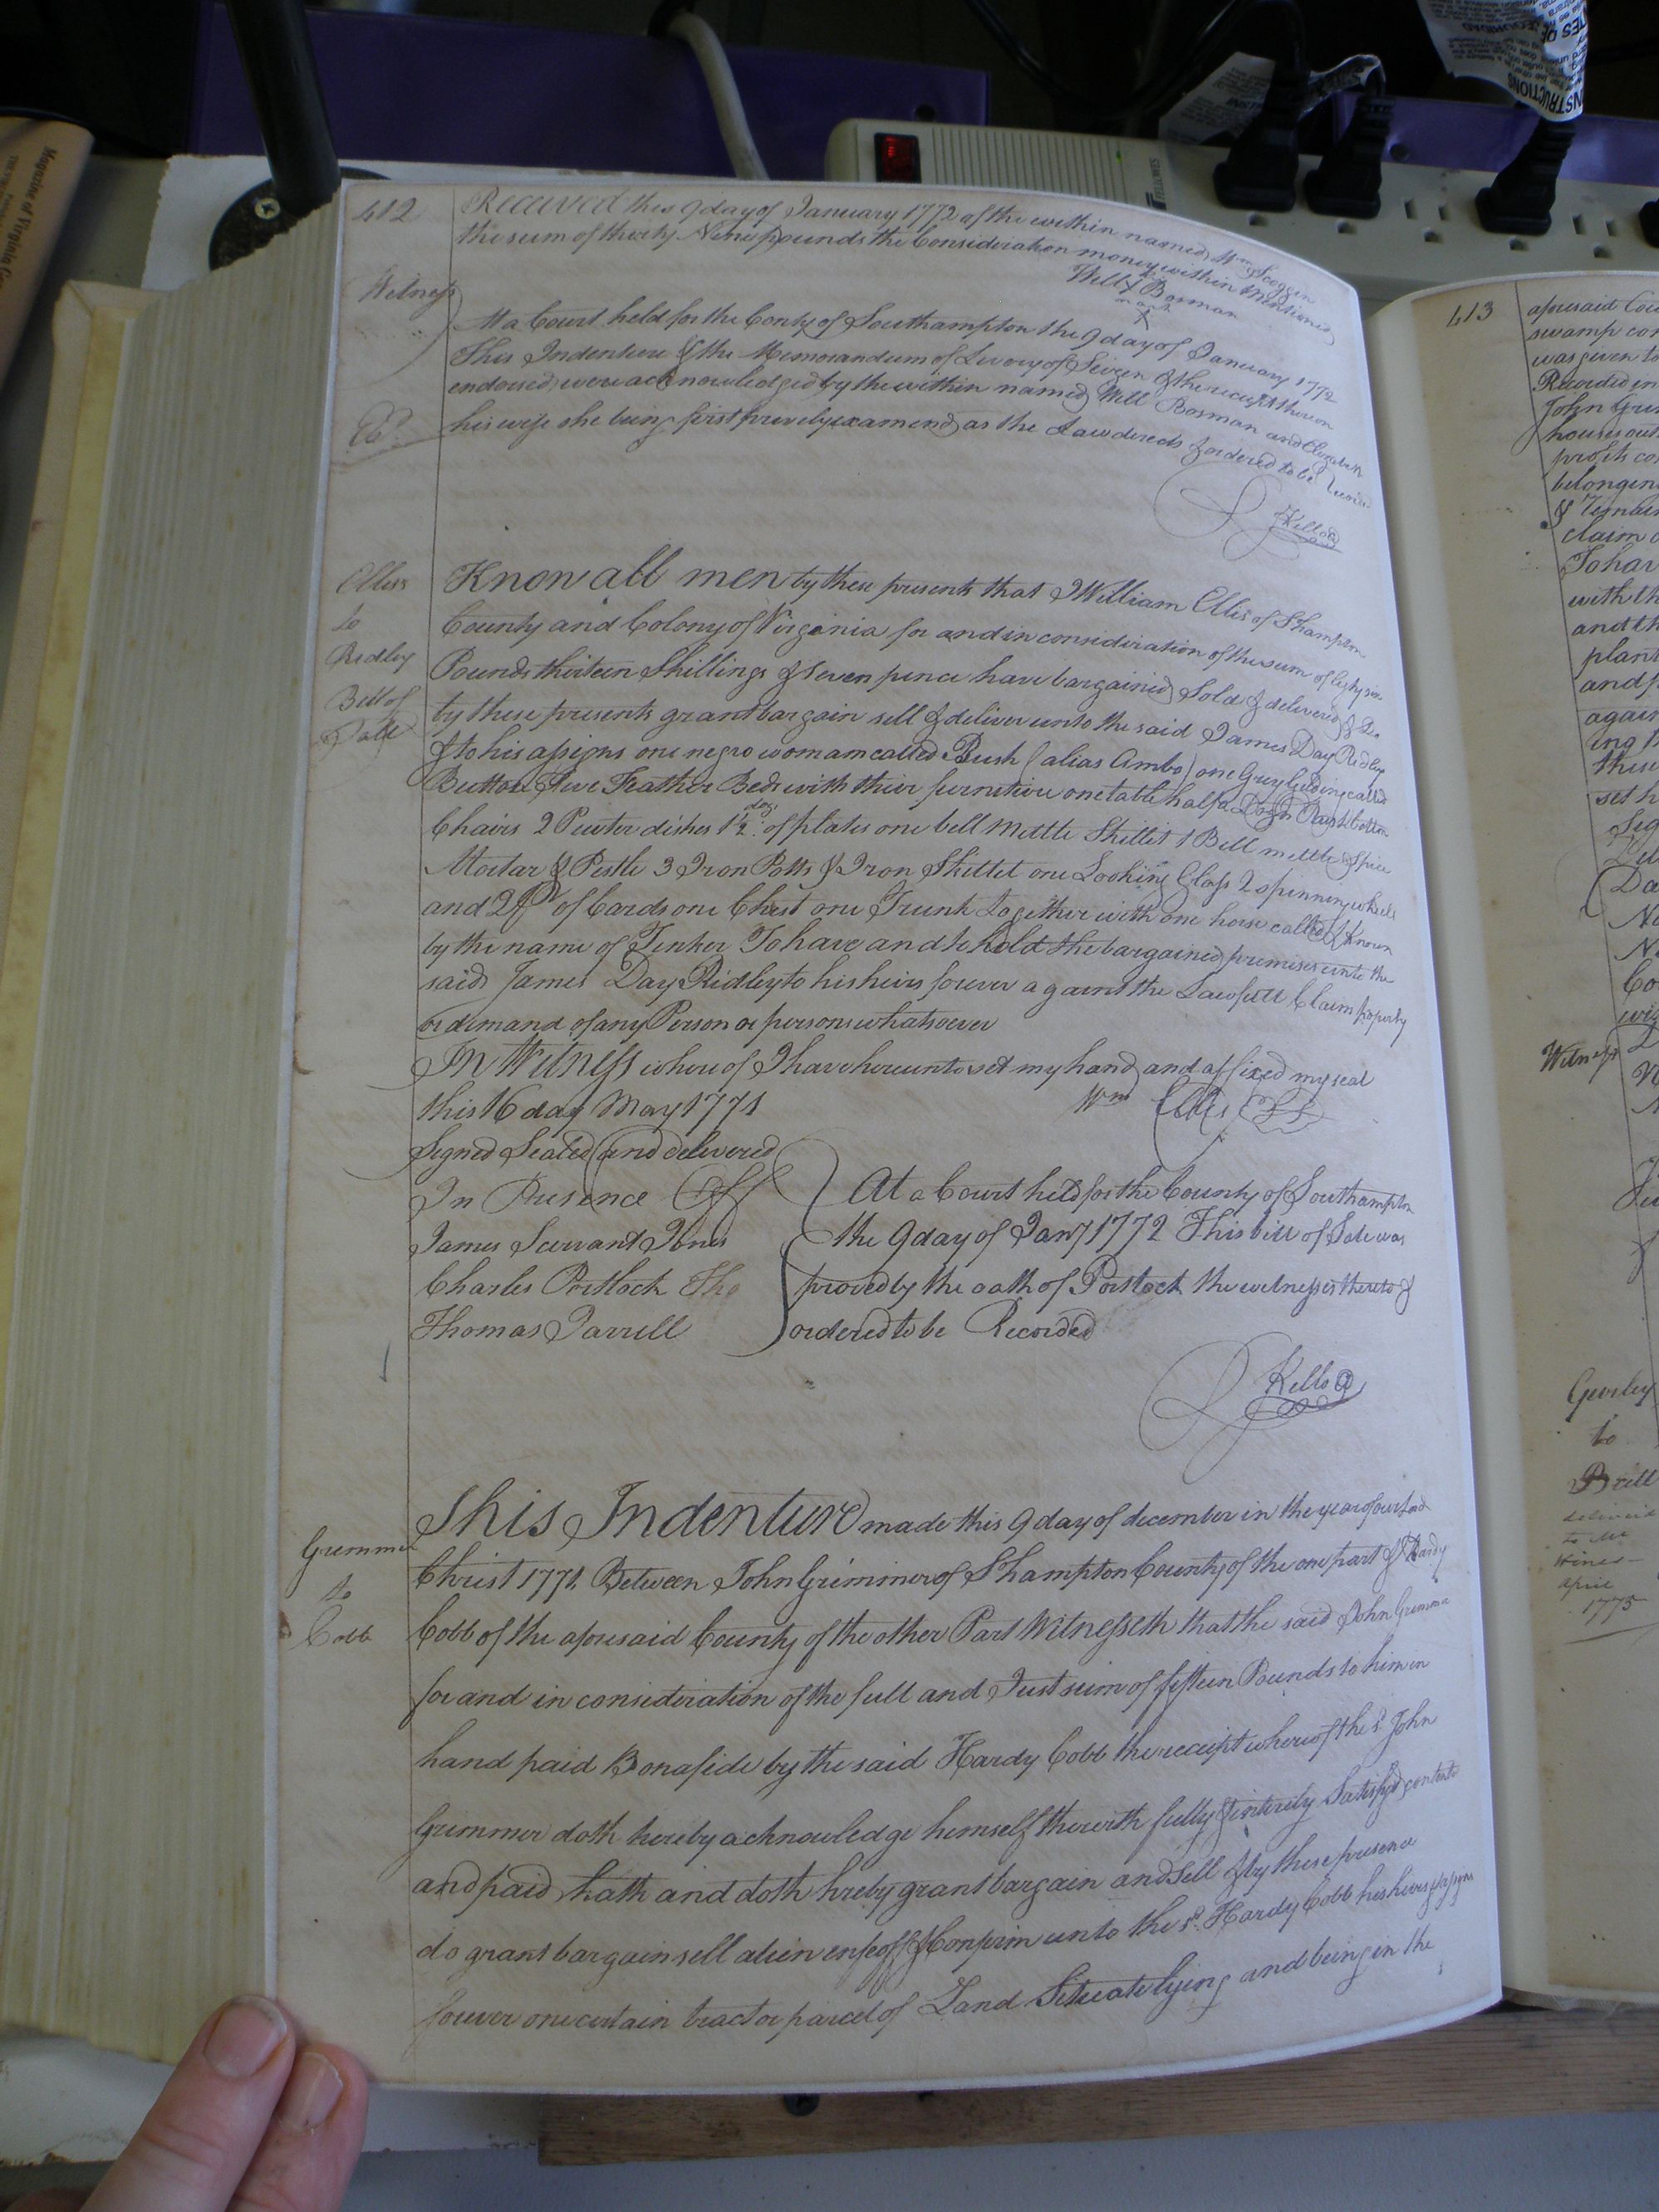 412
Received this 9 day of January 1772 of the within named Wm Scoggin
the sum of thirty Nine pounds the Consideration money within Mentioned
his
Will X Bosman
mark
Witness
At a Court held for the Conty of Southampton the 9 day of January 1772
This Indenture & the Memorandum of Livery of Seizen & the receipt thereon
endorsed were acknowledged by the within named Will Bosman and Elizabeth
his wife she being first prively examend as the Law directs & ordered to be Record
Kello
Ellis
to
Ridley
Bill of
Sale
Know all men by these presents that I William Ellis of Shampton
County and Colony of Virginia for and in consideration of the sum of
Pounds thirteen Shillings & seven pence have bargained Sold & delivered & Do
by these presents grant bargain sell & deliver unto the said James Day Ridley
& to his assigns one negro womam called (alias Ambo) one Grey Gelding called
Button five Feather Beds with their furniture one table half a Dozn
Chairs 2 Pewter dishes 1 1/2 doz. of plates one bell mettle Skillit 1 Bell mettle Spice
Mortar & Pestle 3 Iron Potts & Iron Skillet one Looking Glass 2 spinning wheels
and 2 pr of Cards one Chest one Trunk together with one horse called & Known
by the name of Tinker To have and to hold the bargained premises unto the
said James Day Ridley to his heirs forever against the Lawfull Claim property
or demand of any Person or persons whatsoever
In Witness where of I have hereunto set my hand and affixed my seal
this 16 day May 1771 Wm Ellis LS
Signed Sealed and delivered
In Presence Off
James Servant Jones
Charles Portlock Tho
Thomas Jarrell
At a Court held for the County of Southampton
the 9 day of Jany 1772 This bill of Sale was
proved by the oath of Portlock the witnesses thereto &
ordered to be Recorded
Kello
Grimmer
to
Cobb
This Indenture made this 9 day of december in the year of our Lord
Christ 1771. Between John Grimmer of Shampton County of the one part & Hardy
Cobb of the aforesaid County of the other Part Witnesseth that the said John Grimmer
for and in consideration of the full and Just sum of fifteen Pounds to him in
hand paid Bonafide by the said Hardy Cobb the receipt whereof the sd. John
Grimmer doth hereby acknowledge himself therwith fully & intirely Satisfyd contente
and paid hath and doth hreby grant bargain and Sell & by these presence
do grant bargain sell alien enfeoff & Confirm unto the sd. Hardy Cobb his heirs & assigns
forever one certain tract or parcel of Land Situate lying and being in the
413
aforesaid
swamp
was given to
Recorded in
John
profits
belonging
claim
To hav
with th
and th
plant
again
these
set h
Witness
Gurley
to
delivered
to Mr
Hines
April
1775
Magazine of Virginia
INSTRUCTIONS